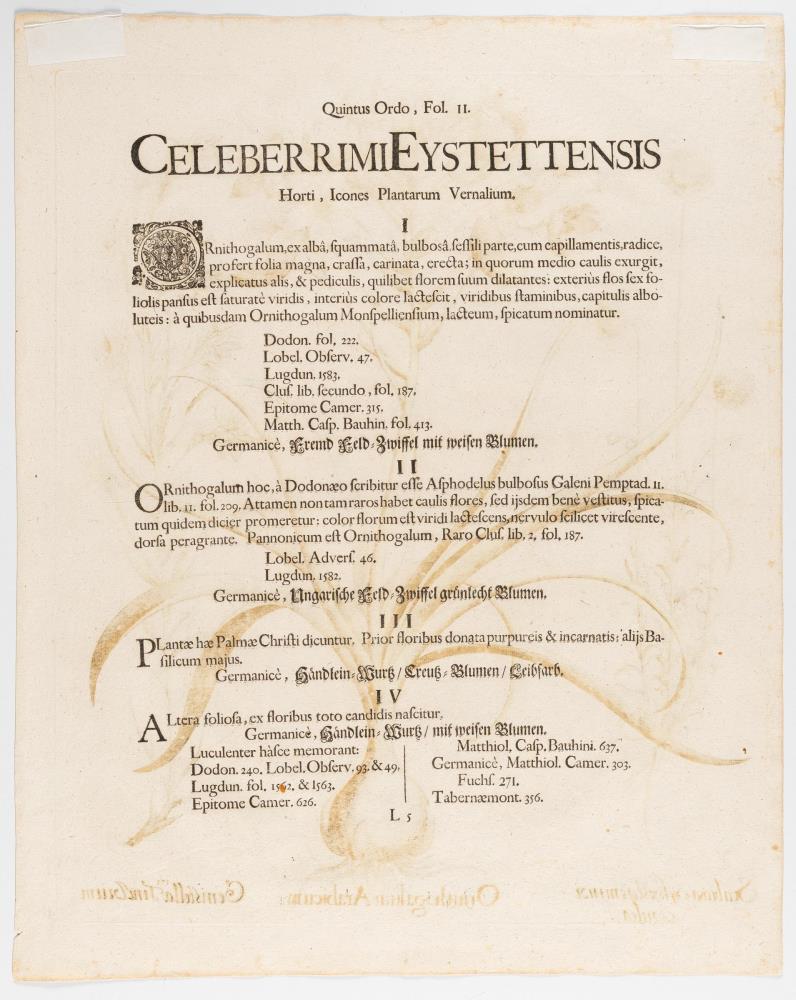 Quintus Ordo, Fol. 11.
CELEBERRIMI EYSTETTENSIS
Horti, Icones Plantarum Vernalium.
I
ORnithogalum, ex albâ, ſquammatâ, bulbosâ ſeſſili parte, cum capillamentis, radice,
profert folia magna, craſſa, carinata, erecta; in quorum medio caulis exurgit,
explicatus alis, & pediculis, quilibet florem ſuum dilatantes: exteriùs flos ſex fo-
liolis panſus eſt ſaturatè viridis, interiùs colore lacteſcit, viridibus ſtaminibus, capitulis albo-
luteis: à quibusdam Ornithogalum Monſpellienſium, lacteum, ſpicatum nominatur.
Dodon. fol. 222.
Lobel. Obſerv. 47.
Lugdun. 1583.
Cluſ. lib. ſecundo, fol. 187.
Epitome Camer. 315.
Matth. Caſp. Bauhin. fol. 413.
Germanicè, Fremd Feld-Zwiffel mit weiſen Blumen.
II
ORnithogalum hoc, à Dodonæo ſcribitur eſſe Aſphodelus bulboſus Galeni Pemptad. 11.
lib. 11. fol. 209. Attamen non tam raros habet caulis flores, ſed ijsdem benè veſtitus, ſpica-
tum quidem dicier promeretur: color florum eſt viridi lacteſcens, nervulo ſcilicet vireſcente,
dorſa peragrante. Pannonicum eſt Ornithogalum, Raro Cluſ. lib. 2. fol. 187.
Lobel. Adverſ. 46.
Lugdun. 1582.
Germanicè, Ungariſche Feld-Zwiffel grünlecht Blumen.
III
PLantæ hæ Palmæ Chriſti dicuntur. Prior floribus donata purpureis & incarnatis: alijs Ba-
ſilicum majus.
Germanicè, Händlein-Wurtz / Creutz-Blumen / Leibfarb.
IV
ALtera folioſa, ex floribus toto candidis naſcitur.
Germanicè, Händlein-Wurtz / mit weiſen Blumen.
Luculenter hàſce memorant:
Dodon. 240. Lobel. Obſerv. 93. & 49.
Lugdun. fol. 1562. & 1563.
Epitome Camer. 626.
Matthiol. Caſp. Bauhini. 637.
Germanicè, Matthiol. Camer. 303.
Fuchſ. 271.
Tabernæmont. 356.
L 5
Geniſtella Tinctorum
Ornithogalum Arabicum